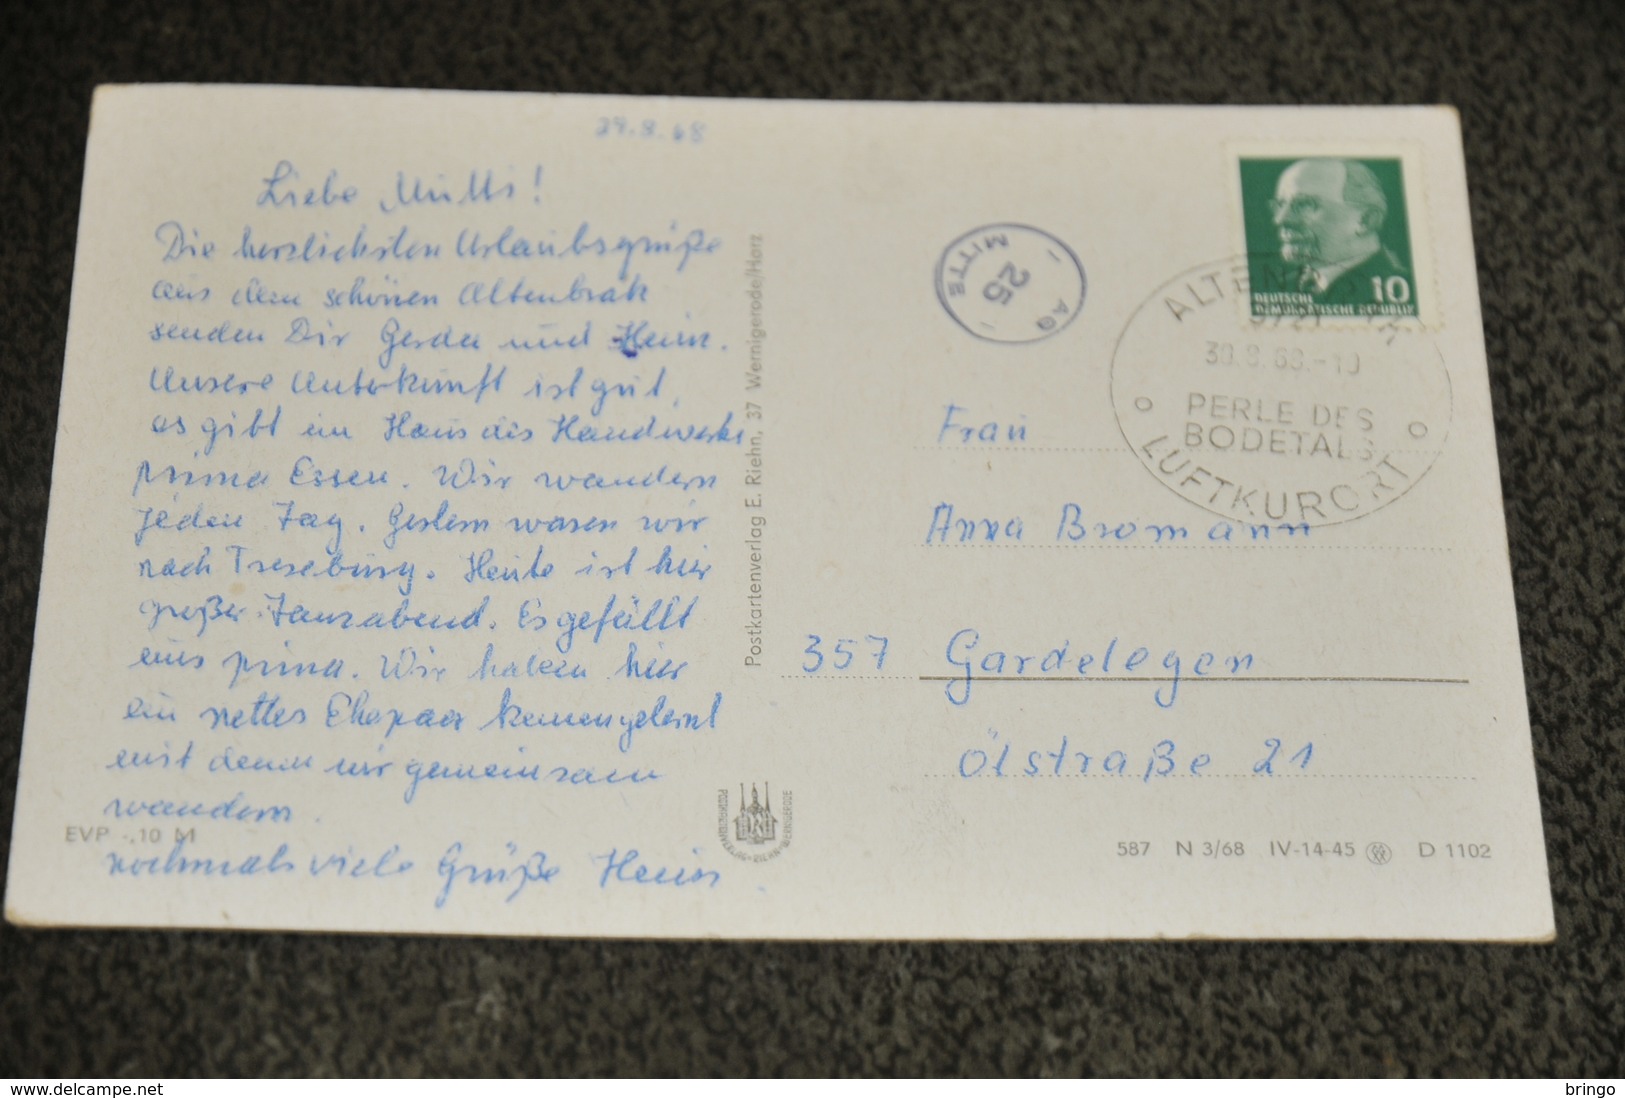 29.8.68
Liebe Mutti!
Die herzlichsten Urlaubsgrüße
aus dem schönen Altenbrak
senden Dir Gerda und Heinz.
Unsere Unterkunft ist gut,
es gibt im Haus des Handwerks
prima Essen. Wir wandern
jeden Tag. Gestern waren wir
nach Treseburg. Heute ist hier
großer Tanzabend. Es gefällt
uns prima. Wir haben hier
ein nettes Ehepaar kennengelernt
mit denen wir gemeinsam
wandern.
EVP -.10 M
nochmals viele Grüße Heinz.
Postkartenverlag E. Riehn, 37 Wernigerode/Harz
POSTKARTENVERLAG · RIEHN · WERNIGERODE
AG
25
MITTE
DEUTSCHE
DEMOKRATISCHE REPUBLIK
10
30.8.68.-10
PERLE DES
BODETALS
LUFTKURORT
Frau
Anna Bromann
357 Gardelegen
Ölstraße 21
587 N 3/68 IV-14-45 D 1102
www.delcampe.net
bringo